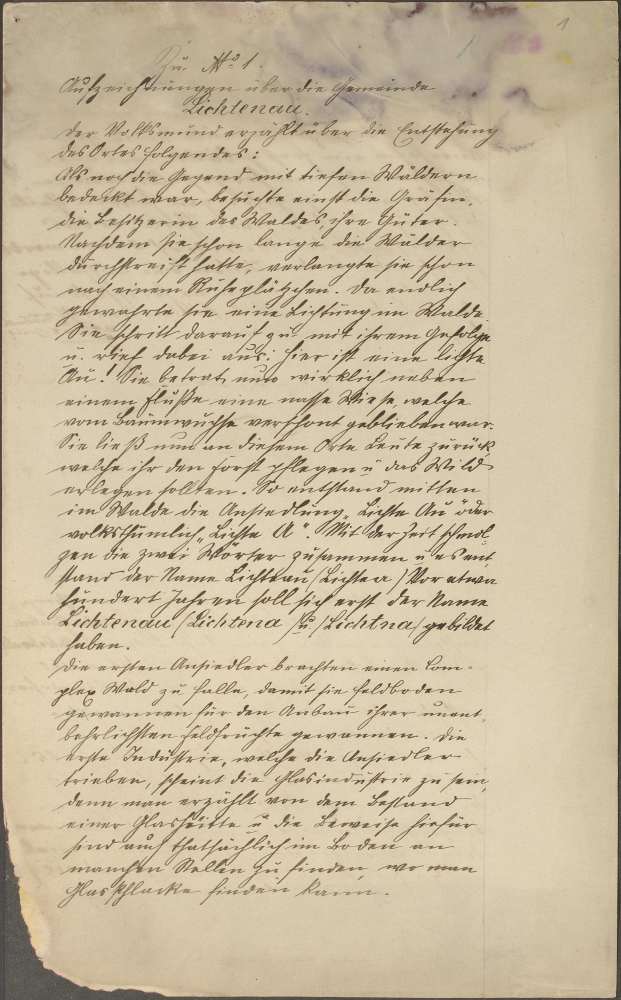 1
Zu No 1.
Aufzeichnungen über die Gemeinde
Lichtenau.
Der Volksmund erzählt über die Entstehung
des Ortes folgendes:
Als noch die Gegend mit tiefen Wäldern
bedeckt war, besuchte einst die Gräfin,
die Besitzerin des Waldes ihre Güter.
Nachdem sie schon lange die Wälder
durchstreift hatte, verlangte sie schon
nach einem Ruheplätzchen. Da endlich
gewahrte sie eine Lichtung im Walde.
Sie schritt darauf zu mit ihrem Gefolge
u. rief dabei aus: Hier ist eine lichte
Au! Sie betrat nun wirklich neben
einem Fluße eine nasse Wiese welche
vom Baumwuchse verschont geblieben war.
Sie ließ nun an diesem Orte Leute zurück,
welche ihr den Forst pflegen u das Wild
erlegen sollten. So entstand mitten
im Walde die Ansiedlung „Lichte Au" oder
volksthümlich „Lichte A". Mit der Zeit schmol-
zen die zwei Wörter zusammen u es ent-
stand der Name Lichteau (Lichtea) Vor etwa
hundert Jahren soll sich erst der Name
Lichtenau (Lichtena) u (Lichtna) gebildet
haben.
Die ersten Ansiedler brachten einen Com-
plex Wald zu Falle, damit sie Feldboden
gewannen für den Anbau ihrer unent-
behrlichsten Feldfrüchte gewannen. Die
erste Industrie, welche die Ansiedler
trieben, scheint die Glasindustrie zu sein,
denn man erzählt von dem Bestand
einer Glashütte u die Beweise hiefür
sind auch thatsächlich im Boden an
manchen Stellen zu finden, wo man
Glasschlacke finden kann.